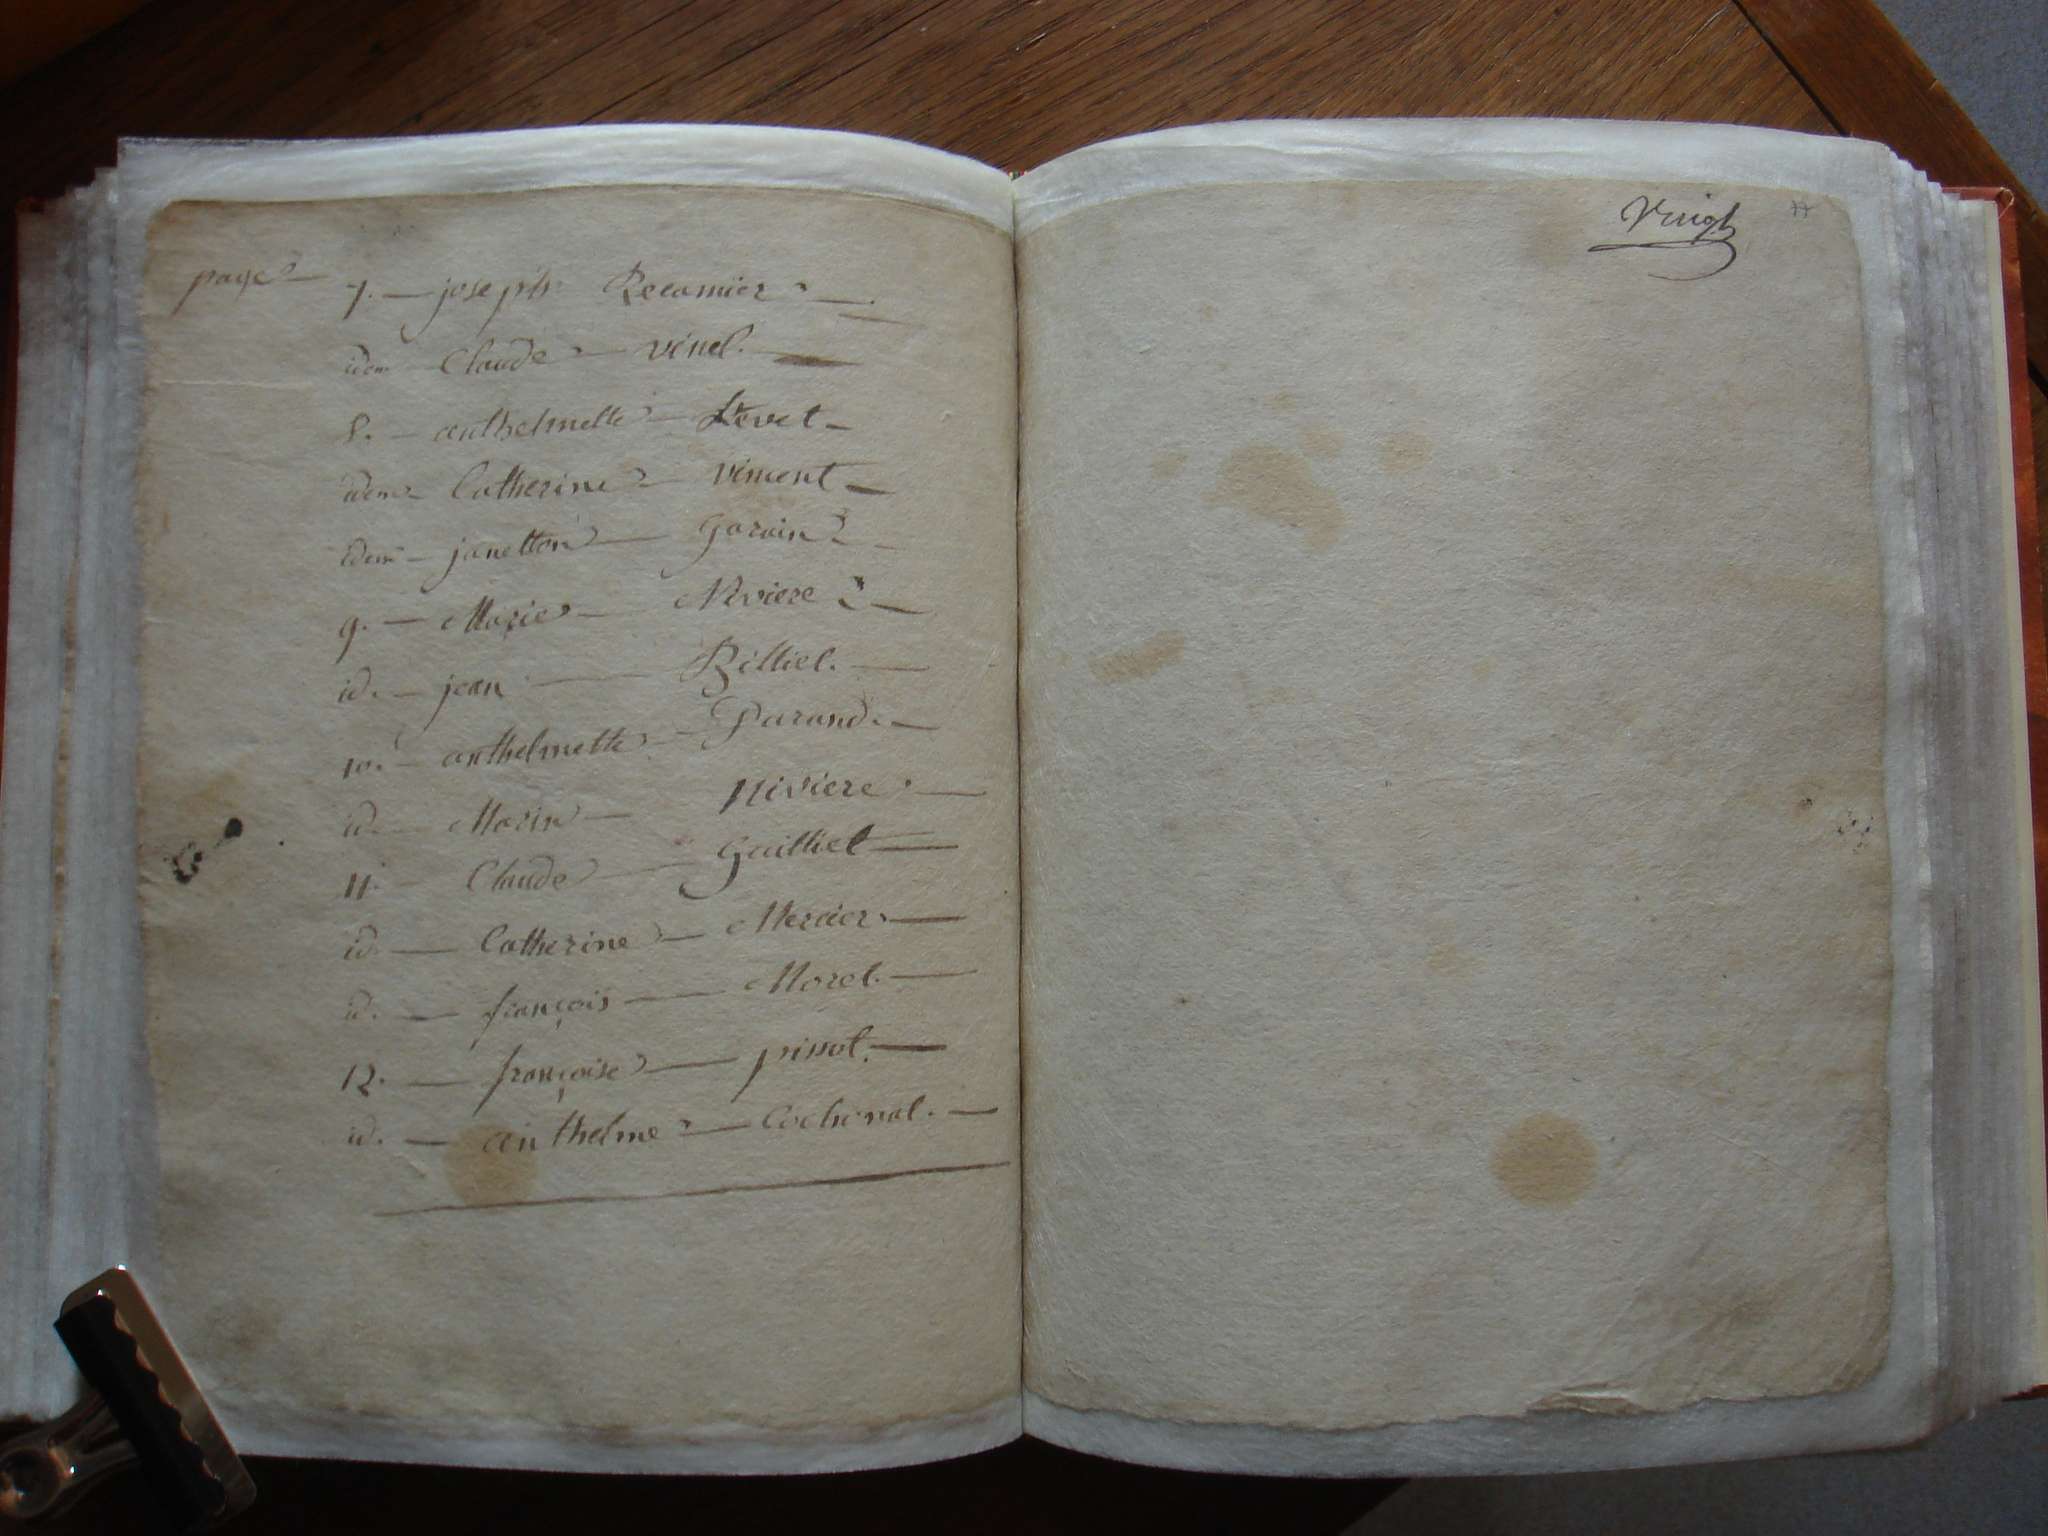 page 7. — joseph Recamier —
idem — Claude — vinel. —
8. — anthelmette — Levet —
idem — Catherine — viment —
idem — janetton — Garain —
9. — Marie — Niviere —
id. — jean — Billiet. —
10. — anthelmette — Parand. —
id. — Marin — Niviere —
11. — Claude — Gailliet —
id. — Catherine — Mercier. —
id. — françois — Morel. —
12. — françoise — pissot. —
id. — anthelme — Cochonat. —
Vingt